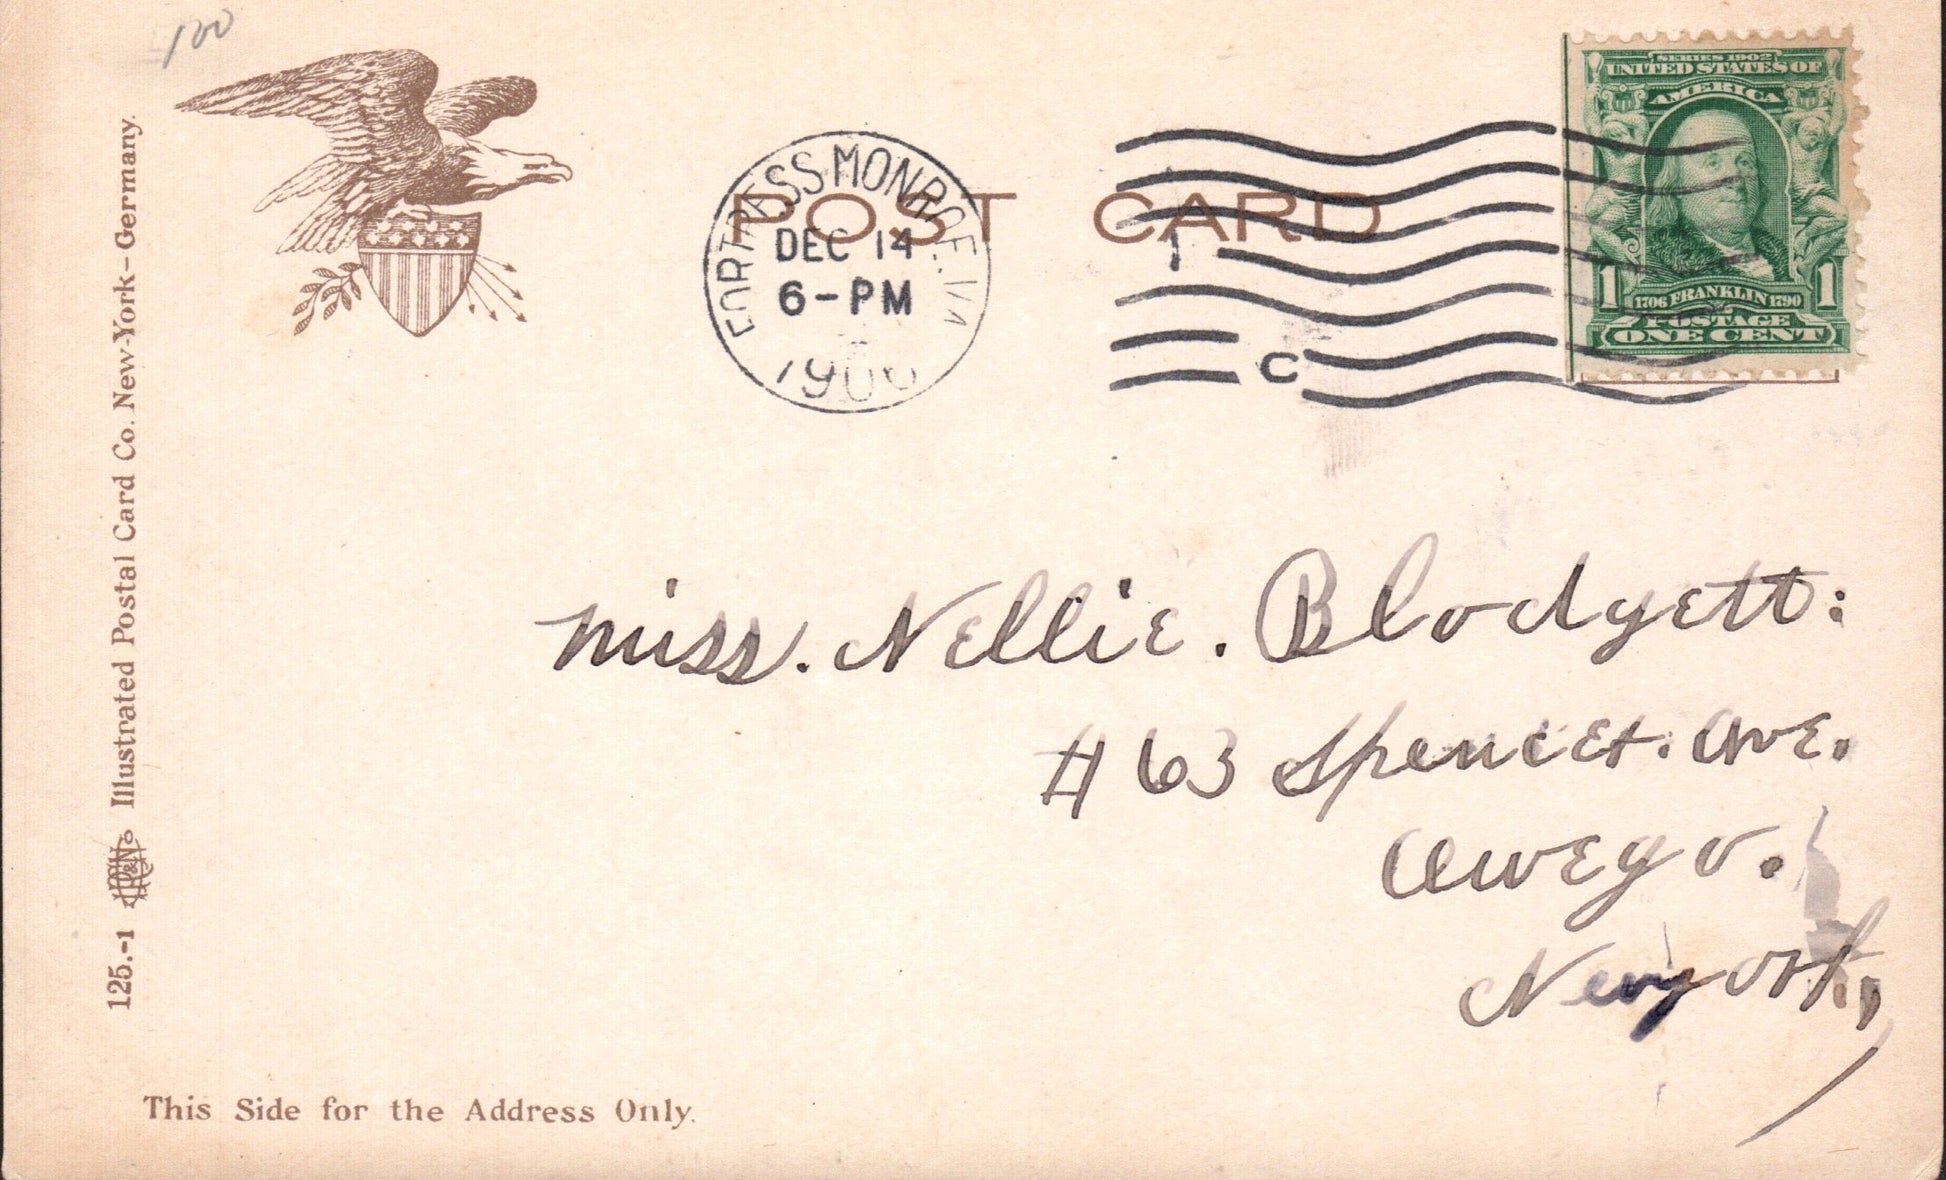 100
SERIES 1902
UNITED STATES OF
AMERICA
1 1706 FRANKLIN 1790 1
POSTAGE
ONE CENT
POST CARD
FORTRESS MONROE. VA
DEC 14
6-PM
1
C
Miss. Nellie. Blodgett:
# 63 Spencer. Ave.
Owego.
New york,
125.-1 Illustrated Postal Card Co. New-York-Germany.
This Side for the Address Only.